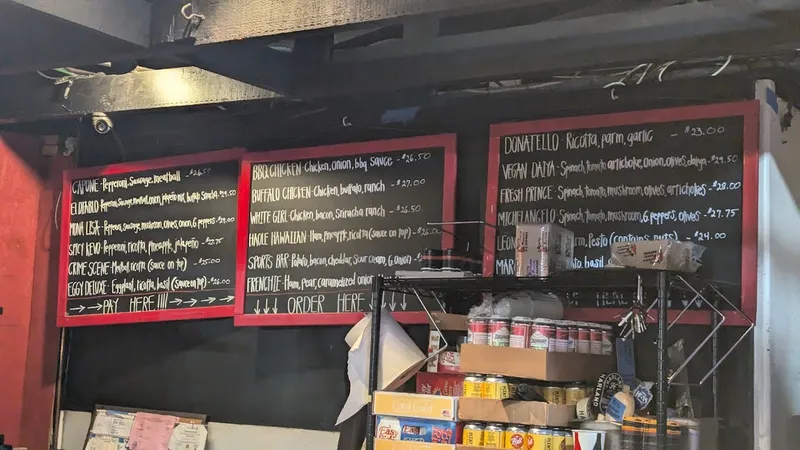 CAPONE - Pepperoni, Sausage, meatball - $26.50
EL DIABLO - Pepperoni, Sausage, meatball, onion, jalapeño
MONA LISA - Pepperoni, Sausage, mushroom, olives, onion, 6 peppers - $29.00
SPICY KEVO - Pepperoni, ricotta, pineapple, jalapeño
CRIME SCENE - Meatball, ricotta (sauce on top) - $25.00
EGGY DELUXE - Eggplant, ricotta, basil (sauce on top) - $26.00
→→→ PAY HERE!!! →→→→
BBQ CHICKEN - Chicken, onion, bbq sauce - $26.50
BUFFALO CHICKEN - Chicken, buffalo, ranch - $27.00
WHITE GIRL - Chicken, bacon, sriracha ranch - $26.50
HAOLE HAWAIIAN - Ham, pineapple, ricotta (sauce on top) - $26.00
SPORTS BAR - Potato, bacon, cheddar, Sour cream, G onion
FRENCHIE - Ham, pear, caramelized onion
↓↓↓ ORDER HERE ↓↓
DONATELLO - Ricotta, parm, garlic - $23.00
VEGAN DAIYA - Spinach, tomato, artichoke, onion, olives, daiya - $29.50
FRESH PRINCE - Spinach, tomato, mushroom, olives, artichokes - $28.00
MICHELANGELO - Spinach, tomato, mushroom, 6 peppers, olives - $27.75
LEON arm, Pesto (contains nuts) - $24.00
MAR tomato, basil
HERE